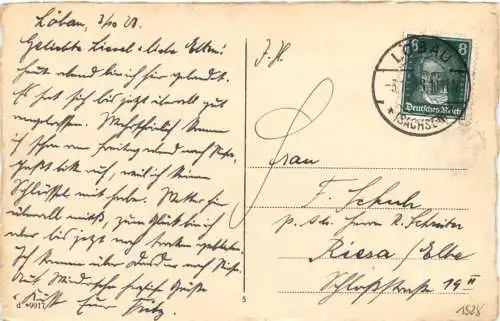 Löbau, 3/10 28.
Geliebte Liesel & liebe Eltern!
Heut abend bin ich hier gelandet.
Es hat sich bis jetzt überall gut
angelassen. Wahrscheinlich komme
ich schon am Freitag abend nach Riesa,
paßt bitte auf, weil ich keinen
Schlüssel mit habe. Wetter ist
überall, zum Glück bin ich
aber bis jetzt noch trocken geblieben.
Ich komme über Dresden nach Riesa.
Auf Wiedersehn herzliche Grüße
Kuß Euer Fritz.
F. H.
8 8
Deutsches Reich
LÖBAU
(SACHSEN)
Frau
F. Schuh
p. Adr. Herrn R. Schreiter
Riesa/Elbe
Schloßstraße 19 II
1928
5